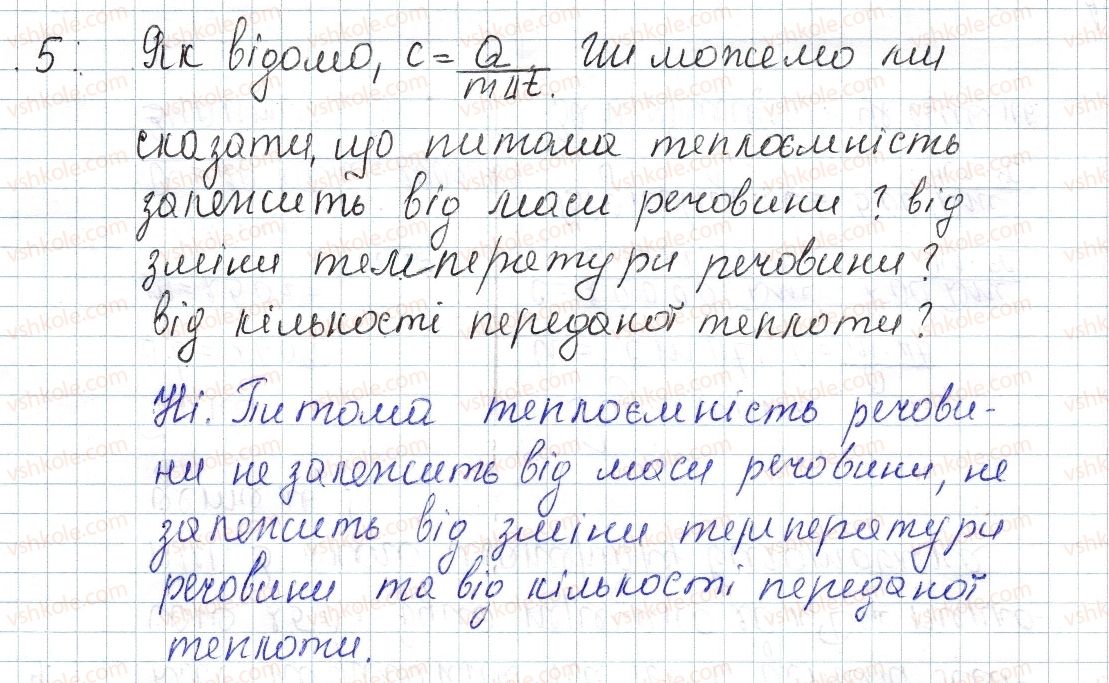 5. Як відомо, c = Q / mΔt. Чи можемо ми
сказати, що питома теплоємність
залежить від маси речовини? від
зміни температури речовини?
від кількості переданої теплоти?
Ні. Питома теплоємність речови-
ни не залежить від маси речовини, не
залежить від зміни температури
речовини та від кількості переданої
теплоти.
vshkole.com